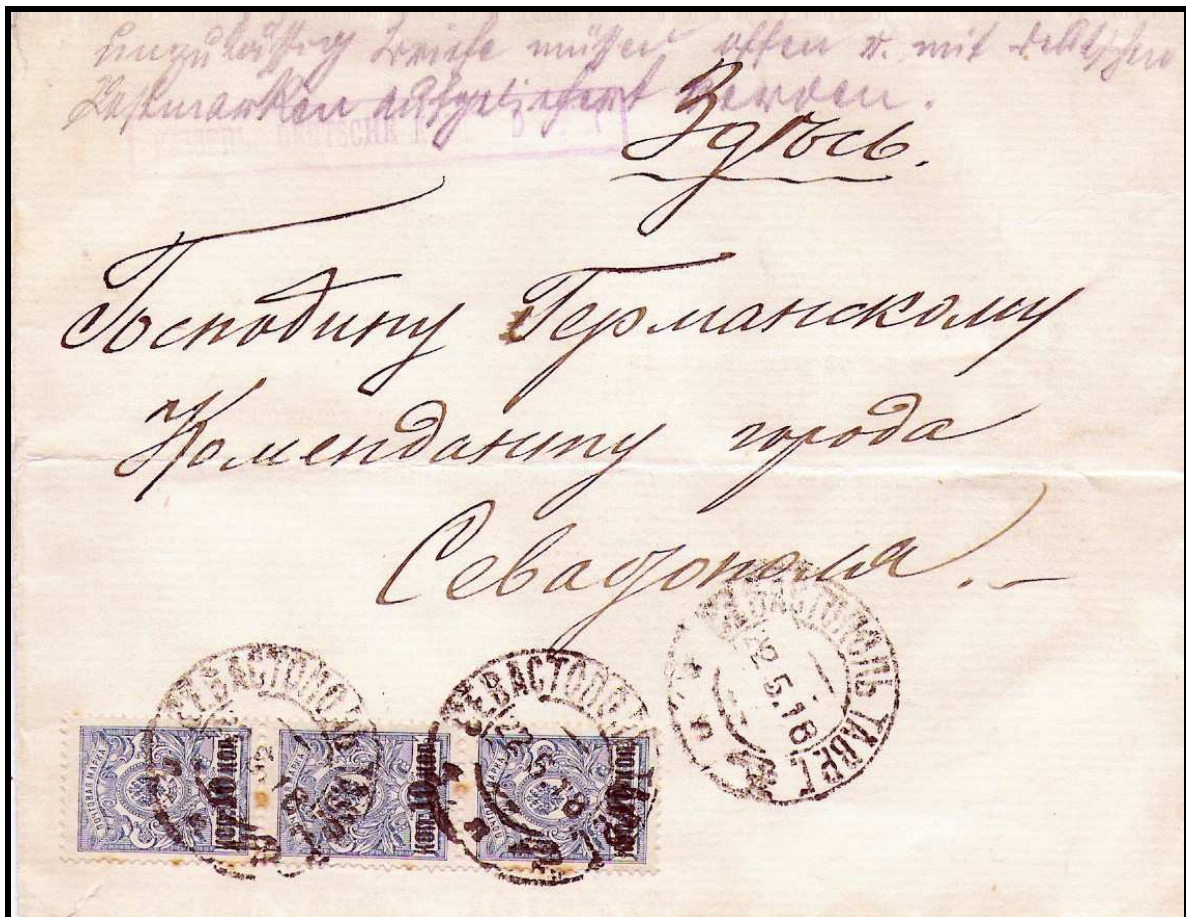 unzulässig Briefe müssen offen u. mit deutschen
Postmarken aufgeliefert werden.
Здѣсь.
Господину Германскому
Коменданту города
Севастополя.
СЕВАСТОПОЛЬ ТАВР.
22.5.18
СЕВАСТОПО
СЕВАСТОПО
ПОЧТОВАЯ МАРКА
коп. 10 коп.
ПОЧТОВАЯ МАРКА
коп. 10 коп.
ПОЧТОВАЯ МАРКА
коп. 10 коп.